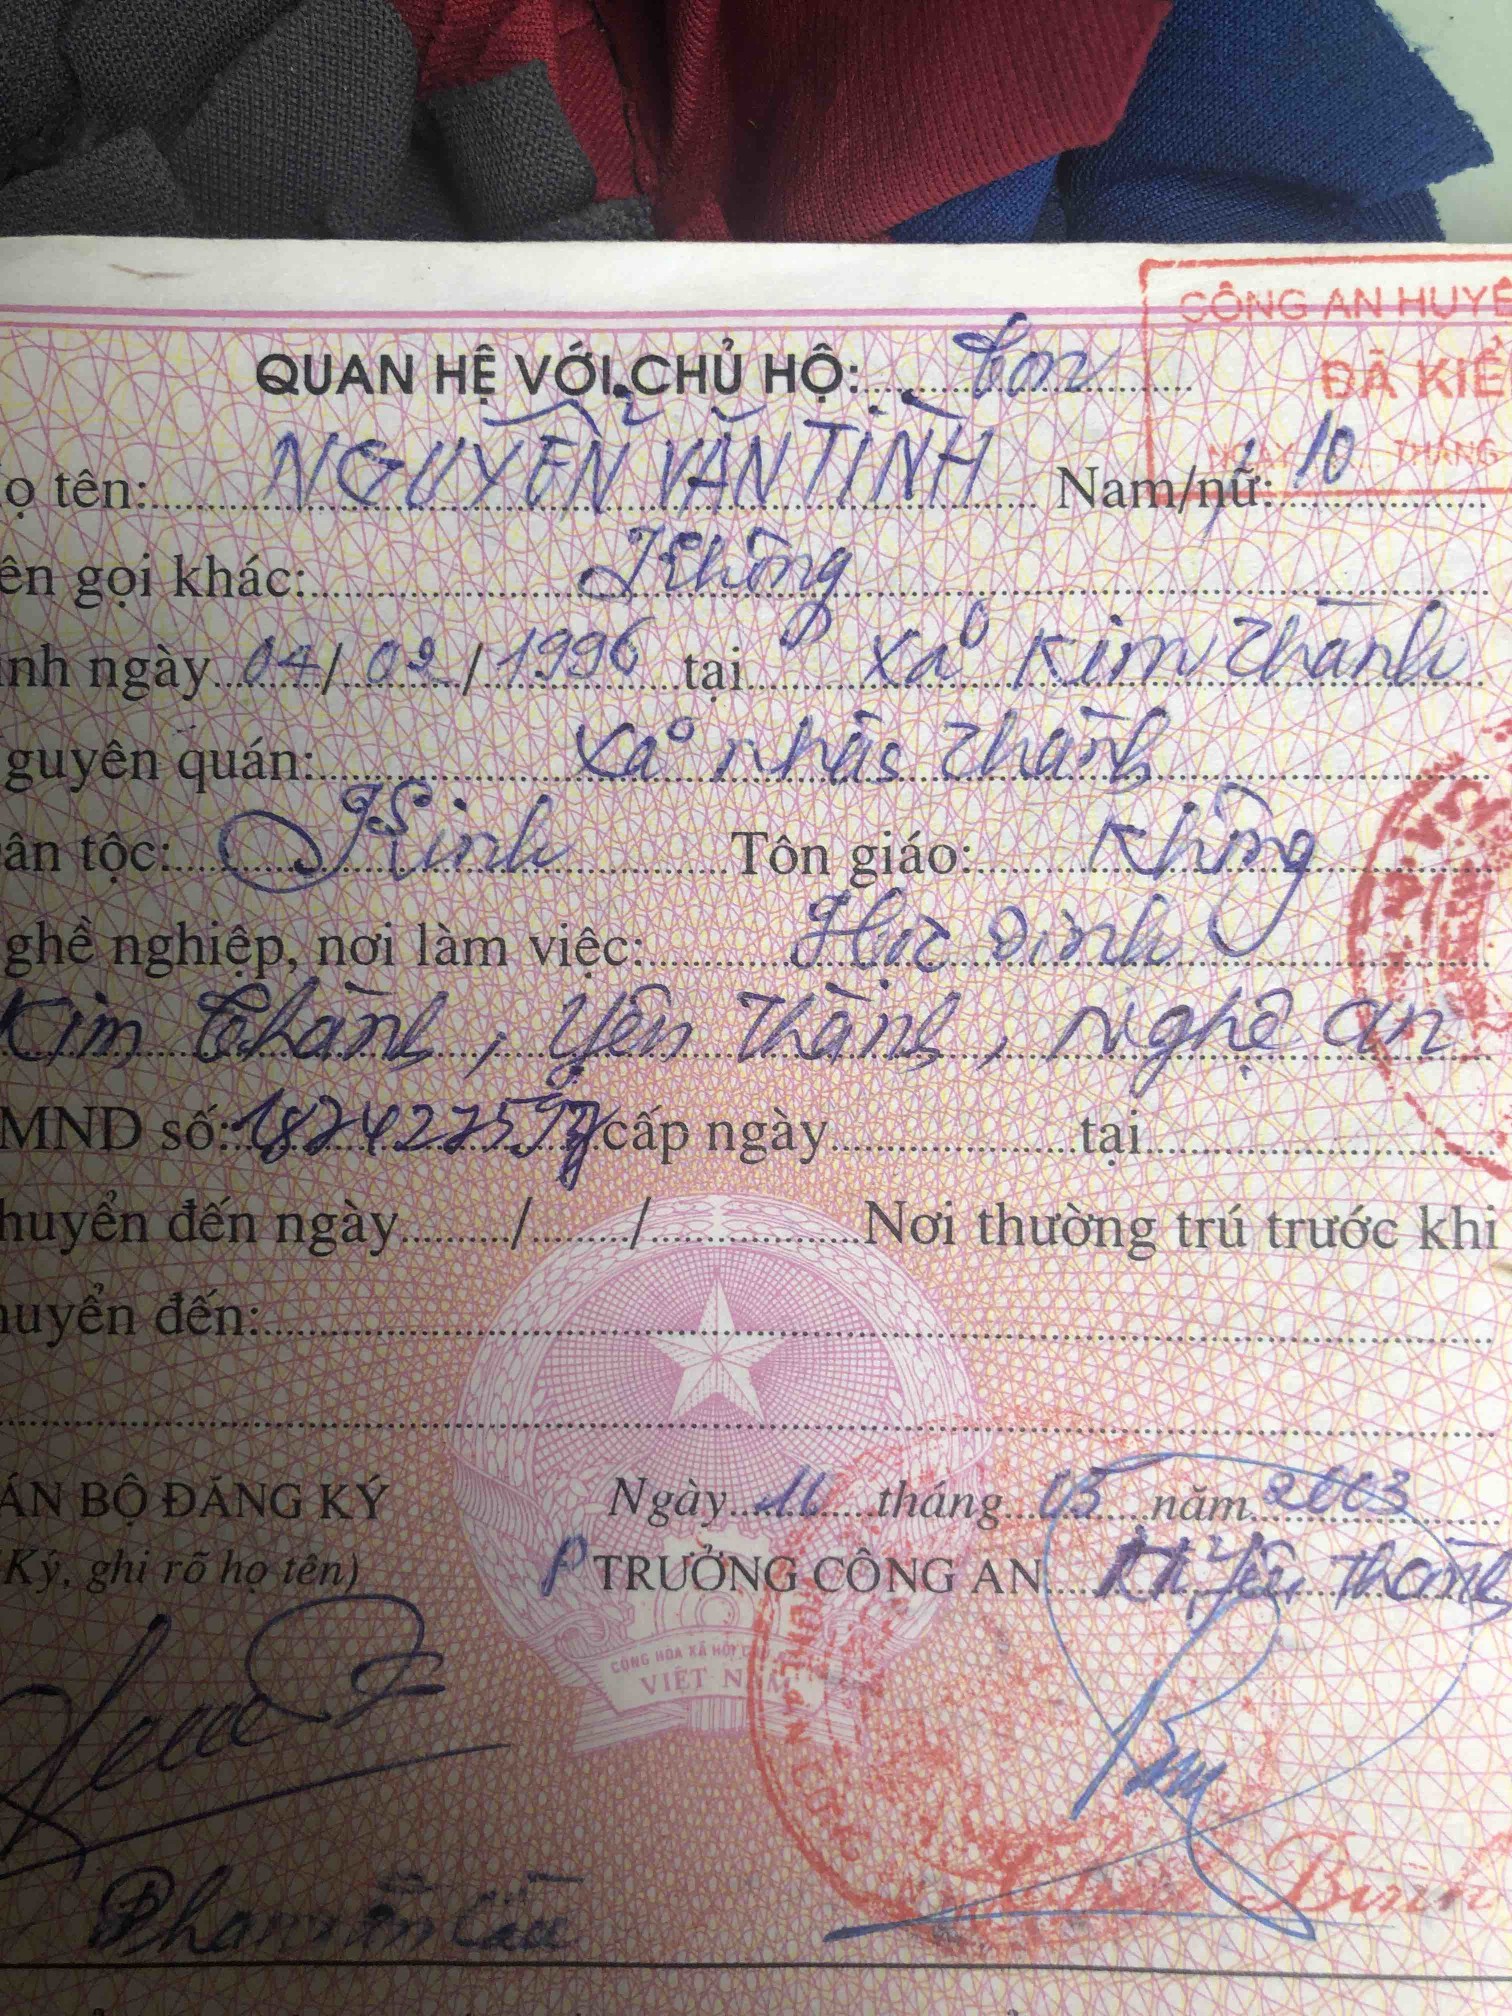 CÔNG AN HUYÊ
ĐÃ KIỂ
QUAN HỆ VỚI CHỦ HỘ: Con
ọ tên: NGUYỄN VĂN TÌNH Nam/nữ: 10
NGÀY THÁNG
ên gọi khác: Không
inh ngày 04/02/1996 tại xã Kim Thành
guyên quán: xã Thành
ân tộc: Kinh Tôn giáo: Không
ghề nghiệp, nơi làm việc: Học sinh
Kim Thành, Yên Thành, Nghệ an
MND số: cấp ngày tại
huyển đến ngày / / Nơi thường trú trước khi
huyển đến:
ÁN BỘ ĐĂNG KÝ
Ngày 16 tháng 05 năm 2003
(Ký, ghi rõ họ tên)
P TRƯỞNG CÔNG AN Yên Thành
CỘNG HÒA XÃ HỘI
VIỆT NAM